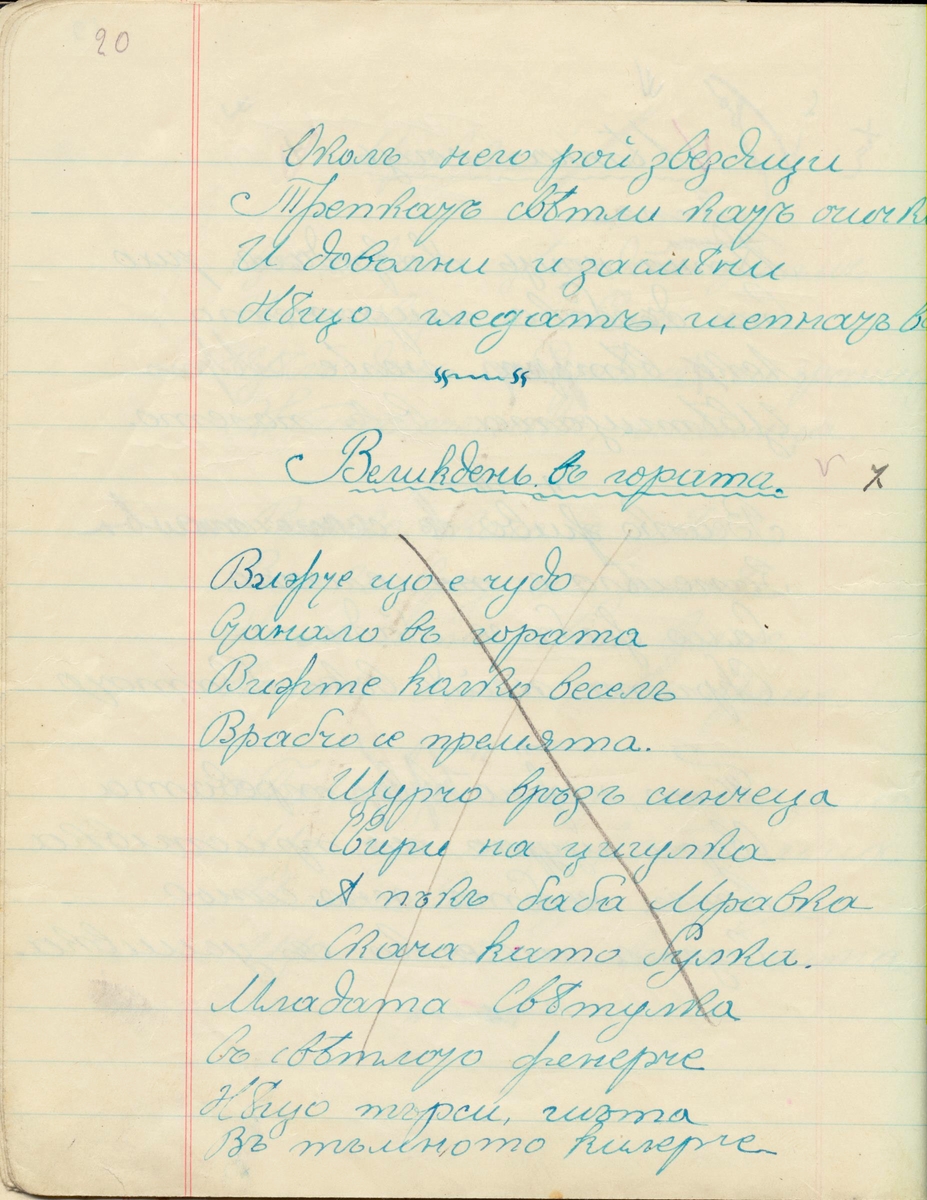 20
Околъ него рой звездици
Трепкатъ свѣтли катъ очички
И доволни и засмѣни
Нѣщо гледатъ, шепнатъ
Великдень въ гората.
Вижте що е чудо
Станало въ гората
Вижте колко веселъ
Врабчо се премята.
Щурчо връзъ синчеца
Свири на цигулка
А пъкъ баба Мравка
Скача като булка.
Младата Свѣтулка
Съ свѣтлото фенерче
Нѣщо търси, шъта
Въ тъмното килерче